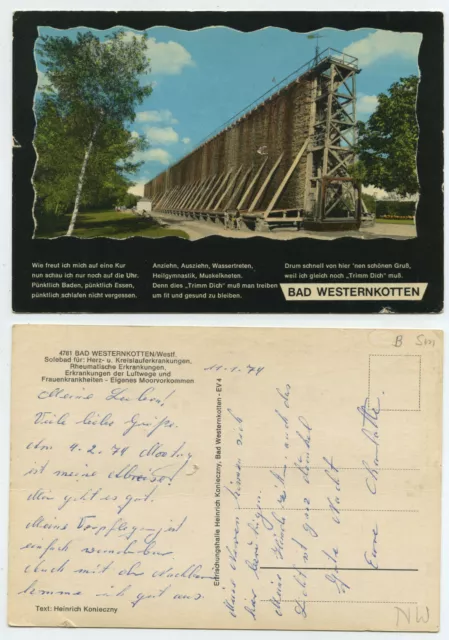 Wie freut ich mich auf eine Kur
nun schau ich nur noch auf die Uhr.
Pünktlich Baden, pünktlich Essen,
pünktlich schlafen nicht vergessen.
Anziehn, Ausziehn, Wassertreten,
Heilgymnastik, Muskelkneten.
Denn dies „Trimm Dich“ muß man treiben
um fit und gesund zu bleiben.
Drum schnell von hier 'nen schönen Gruß,
weil ich gleich noch „Trimm Dich“ muß.
BAD WESTERNKOTTEN
4781 BAD WESTERNKOTTEN/Westf.
Solebad für: Herz- u. Kreislauferkrankungen,
Rheumatische Erkrankungen,
Erkrankungen der Luftwege und
Frauenkrankheiten - Eigenes Moorvorkommen
Meine Lieben!
Viele liebe Grüße.
Am 9.2.74 Montag
ist meine Abreise.
Mir geht es gut.
Meine Verpflegung ist
einfach wunderbar.
Auch mit der Nachbarin
komme ich gut aus.
Text: Heinrich Konieczny
Erfrischungshalle Heinrich Konieczny, Bad Westernkotten - EV 4
11.1.74
Meine Nerven können sich
hier beruhigen.
Licht ist ganz dunkel
Gute Nacht
Eure Charlotte.
B
NW